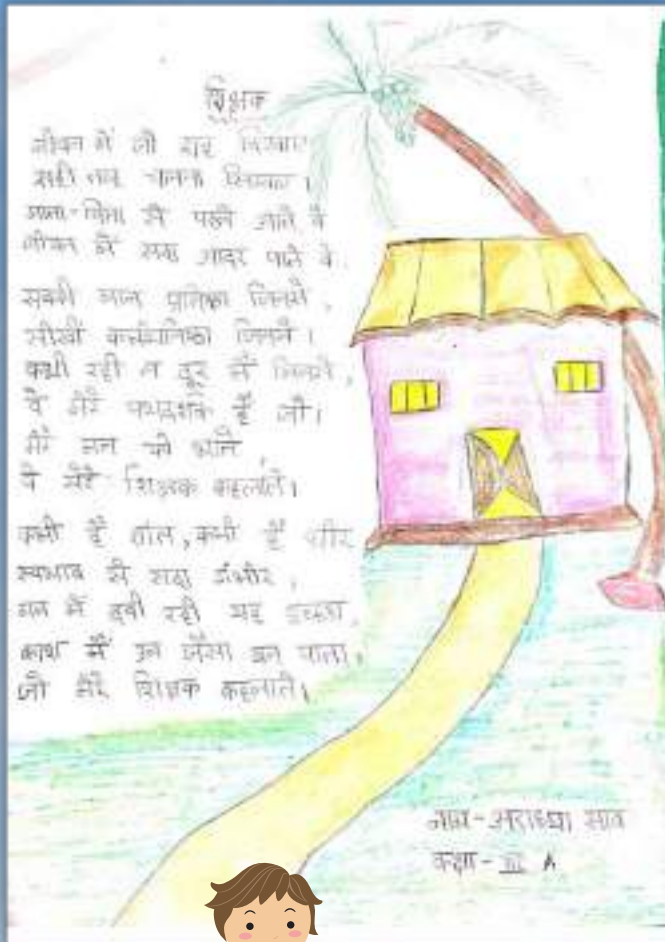 शिक्षक
जीवन में जो राह दिखाए
सही तरह चलना सिखाए।
माता-पिता से पहले आते वे
जीवन में सदा आदर पाते वे।
सबकी मान प्रतिष्ठा जिनसे,
सीखी कर्तव्यनिष्ठा जिनसे।
कभी रहा न दूर मैं जिनसे,
वे मेरे पथदर्शक हैं जो।
मेरे मन को भाते,
वे मेरे शिक्षक कहलाते।
कभी है शांत, कभी है धीर
स्वभाव में सदा गंभीर,
मन में दबी रही यह इच्छा,
काश मैं उन जैसा बन पाता,
जो मेरे शिक्षक कहलाते।
नाम-अराध्या साव
कक्षा-III A